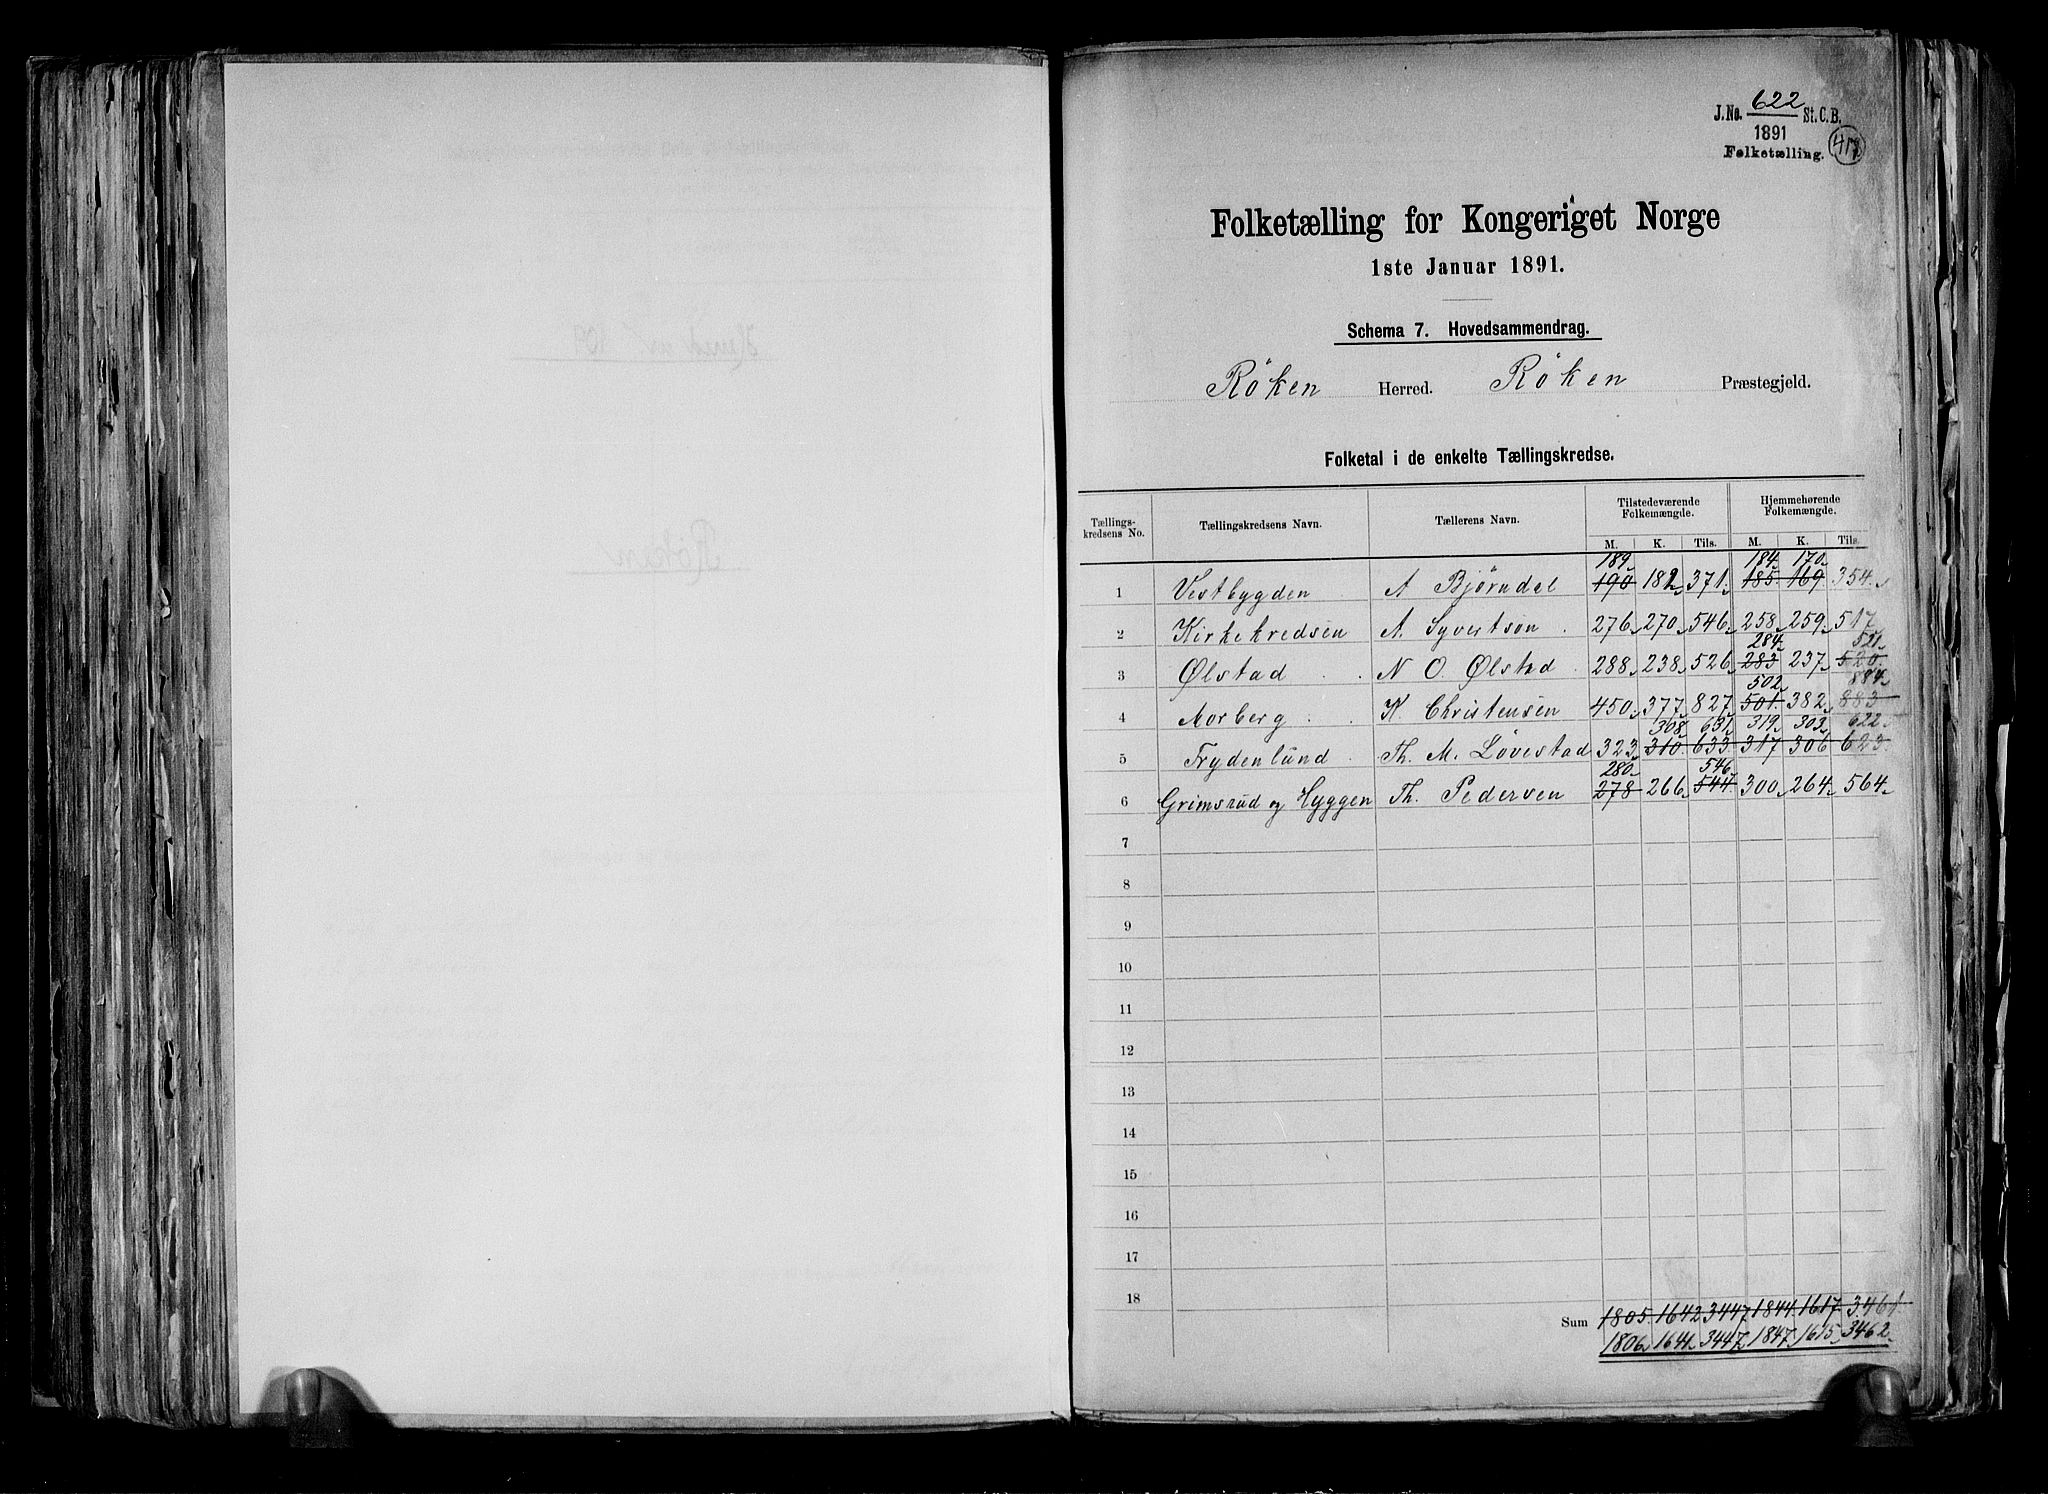 J.No. 622 St. C. B.
1891
Folketælling.
Folketælling for Kongeriget Norge
1ste Januar 1891.
Schema 7. Hovedsammendrag.
Röken Herred. Röken Præstegjeld.
Folketal i de enkelte Tællingskredse.
Tællings-kredsens No. Tællingskredsens Navn. Tællerens Navn. Tilstedeværende Folkemængde. Hjemmehørende Folkemængde.
M. K. Tils. M. K. Tils.
189 184 170
1 Vestbygden A Björndel 190 182 371 185 169 354
2 Kirkekredsen A. Syvertson 276 270 546 258 259 517
284 521
3 Ølstad N O. Ølstad 288 238 526 283 237 520
502 884
4 Aorberg K. Christensen 450 377 827 501 382 883
308 631 319 303 622
5 Frydenlund Th. M. Lövestad 323 310 633 317 306 623
280 546
6 Grimsrud og Hyggen Th. Pedersen 278 266 544 300 264 564
7
8
9
10
11
12
13
14
15
16
17
18
Sum 1805 1642 3447 1844 1617 3461
1806 1641 3447 1847 1615 3462